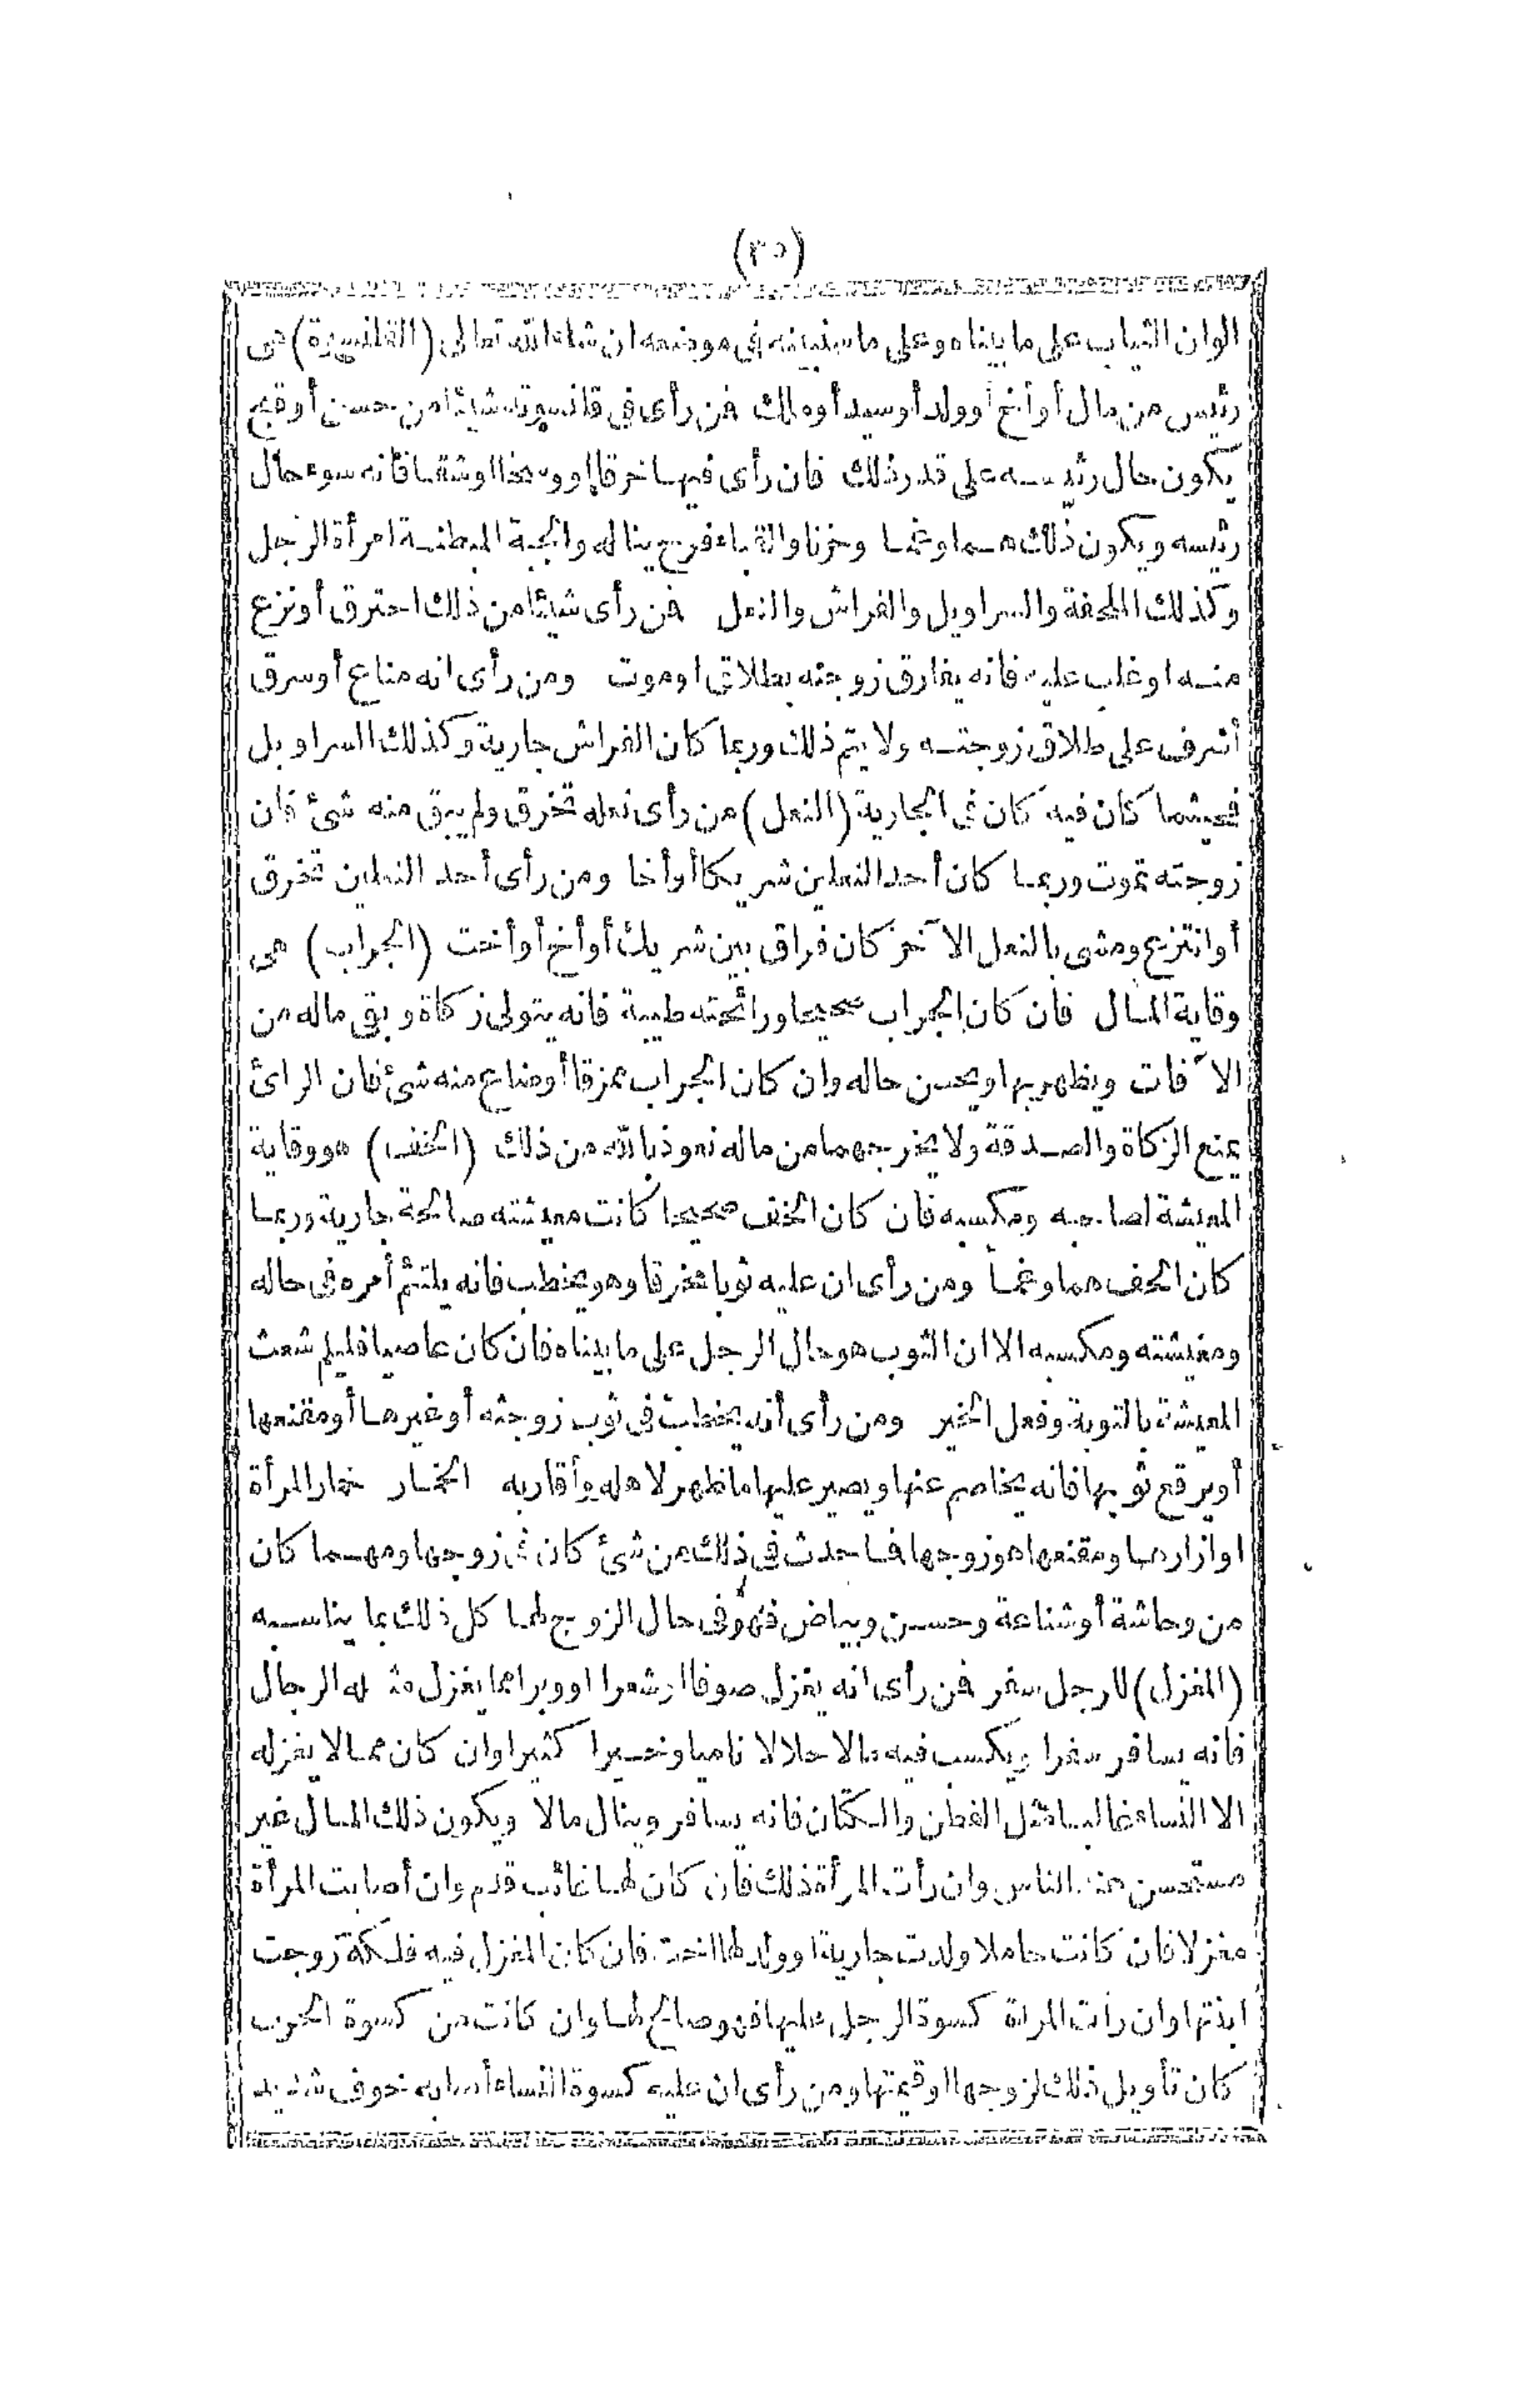 (٣٥)
الوان الثياب على ما بيناه وعلى ما سنبينه فى موضعه ان شاء الله تعالى (القلنسوة) هى
رئيس من مال أو أخ أو ولد أو سيد أو ملك فمن رأى فى قلنسوته شيئا من حسن أو قبح
يكون حال رئيسه على قدر ذلك فان رأى فيها خرقا أو وسخا او شقا فانه سوء حال
رئيسه ويكون ذلك هما وغما وحزنا والقباء فرج يناله والجبة المبطنة امرأة الرجل
وكذلك الملحفة والسراويل والفراش والنعل فمن رأى شيئا من ذلك احترق أو نزع
منه او غلب عليه فانه يفارق زوجته بطلاق او موت ومن رأى انه ضاع أو سرق
أشرف على طلاق زوجته ولا يتم ذلك وربما كان الفراش جارية وكذلك السراويل
فحيثما كان فيه كان فى الجارية (النعل) من رأى نعله تخرق ولم يبق منه شئ فان
زوجته تموت وربما كان أحد النعلين شريكا أو أخا ومن رأى أحد النعلين تخرق
أو انتزع ومشى بالنعل الآخر كان فراق بين شريك أو أخ أو أخت (الجراب) هى
وقاية المال فان كان الجراب صحيحا ورائحته طيبة فانه يتولى زكاة وبقى ماله من
الآفات ويظهر بها ويحسن حاله وان كان الجراب ممزقا أو ضاع منه شئ فان الرائ
يمنع الزكاة والصدقة ولا يخرجهما من ماله نعوذ بالله من ذلك (الخف) هو وقاية
المعيشة لصاحبه ومكسبه فان كان الخف صحيحا كانت معيشته صالحة جارية وربما
كان الخف هما وغما ومن رأى ان عليه ثوبا مخرقا وهو يخطب فانه يلتئم أمره فى حاله
ومعيشته ومكسبه الا ان الثوب هو حال الرجل على ما بيناه فان كان عاصيا فليلم شعث
المعيشة بالتوبة وفعل الخير ومن رأى أنه يخطب فى ثوب زوجته أو غيرها أو مقنعها
أو يرقع ثوبها فانه يخاصم عنها ويصير عليها ما ظهر لاهله وأقاربه الخمار خمار المرأة
او ازارها ومقنعها هو زوجها فما حدث فى ذلك من شئ كان فى زوجها ومهما كان
من وحاشة أو شناعة وحسن وبياض فهو فى حال الزوج لها كل ذلك بما يناسبه
(المغزل) للرجل سفر فمن رأى انه يغزل صوفا او شعرا او وبرا مما يغزل مثله الرجال
فانه يسافر سفرا ويكسب فيه مالا حلالا ناميا وخيرا كثيرا وان كان مما لا يغزله
الا النساء غالبا مثل القطن والكتان فانه يسافر وينال مالا ويكون ذلك المال غير
مستحسن عند الناس وان رأت المرأة ذلك فان كان لها غائب قدم وان أصابت المرأة
مغزلا فان كانت حاملا ولدت جارية او ولد لها اخت فان كان المغزل فيه فلكة زوجت
ابنتها وان رأت المرأة كسوة الرجل عليها فهو صالح لها وان كانت من كسوة الحرب
كان تأويل ذلك لزوجها او قيمتها ومن رأى ان عليه كسوة النساء أصابه خوف شديد